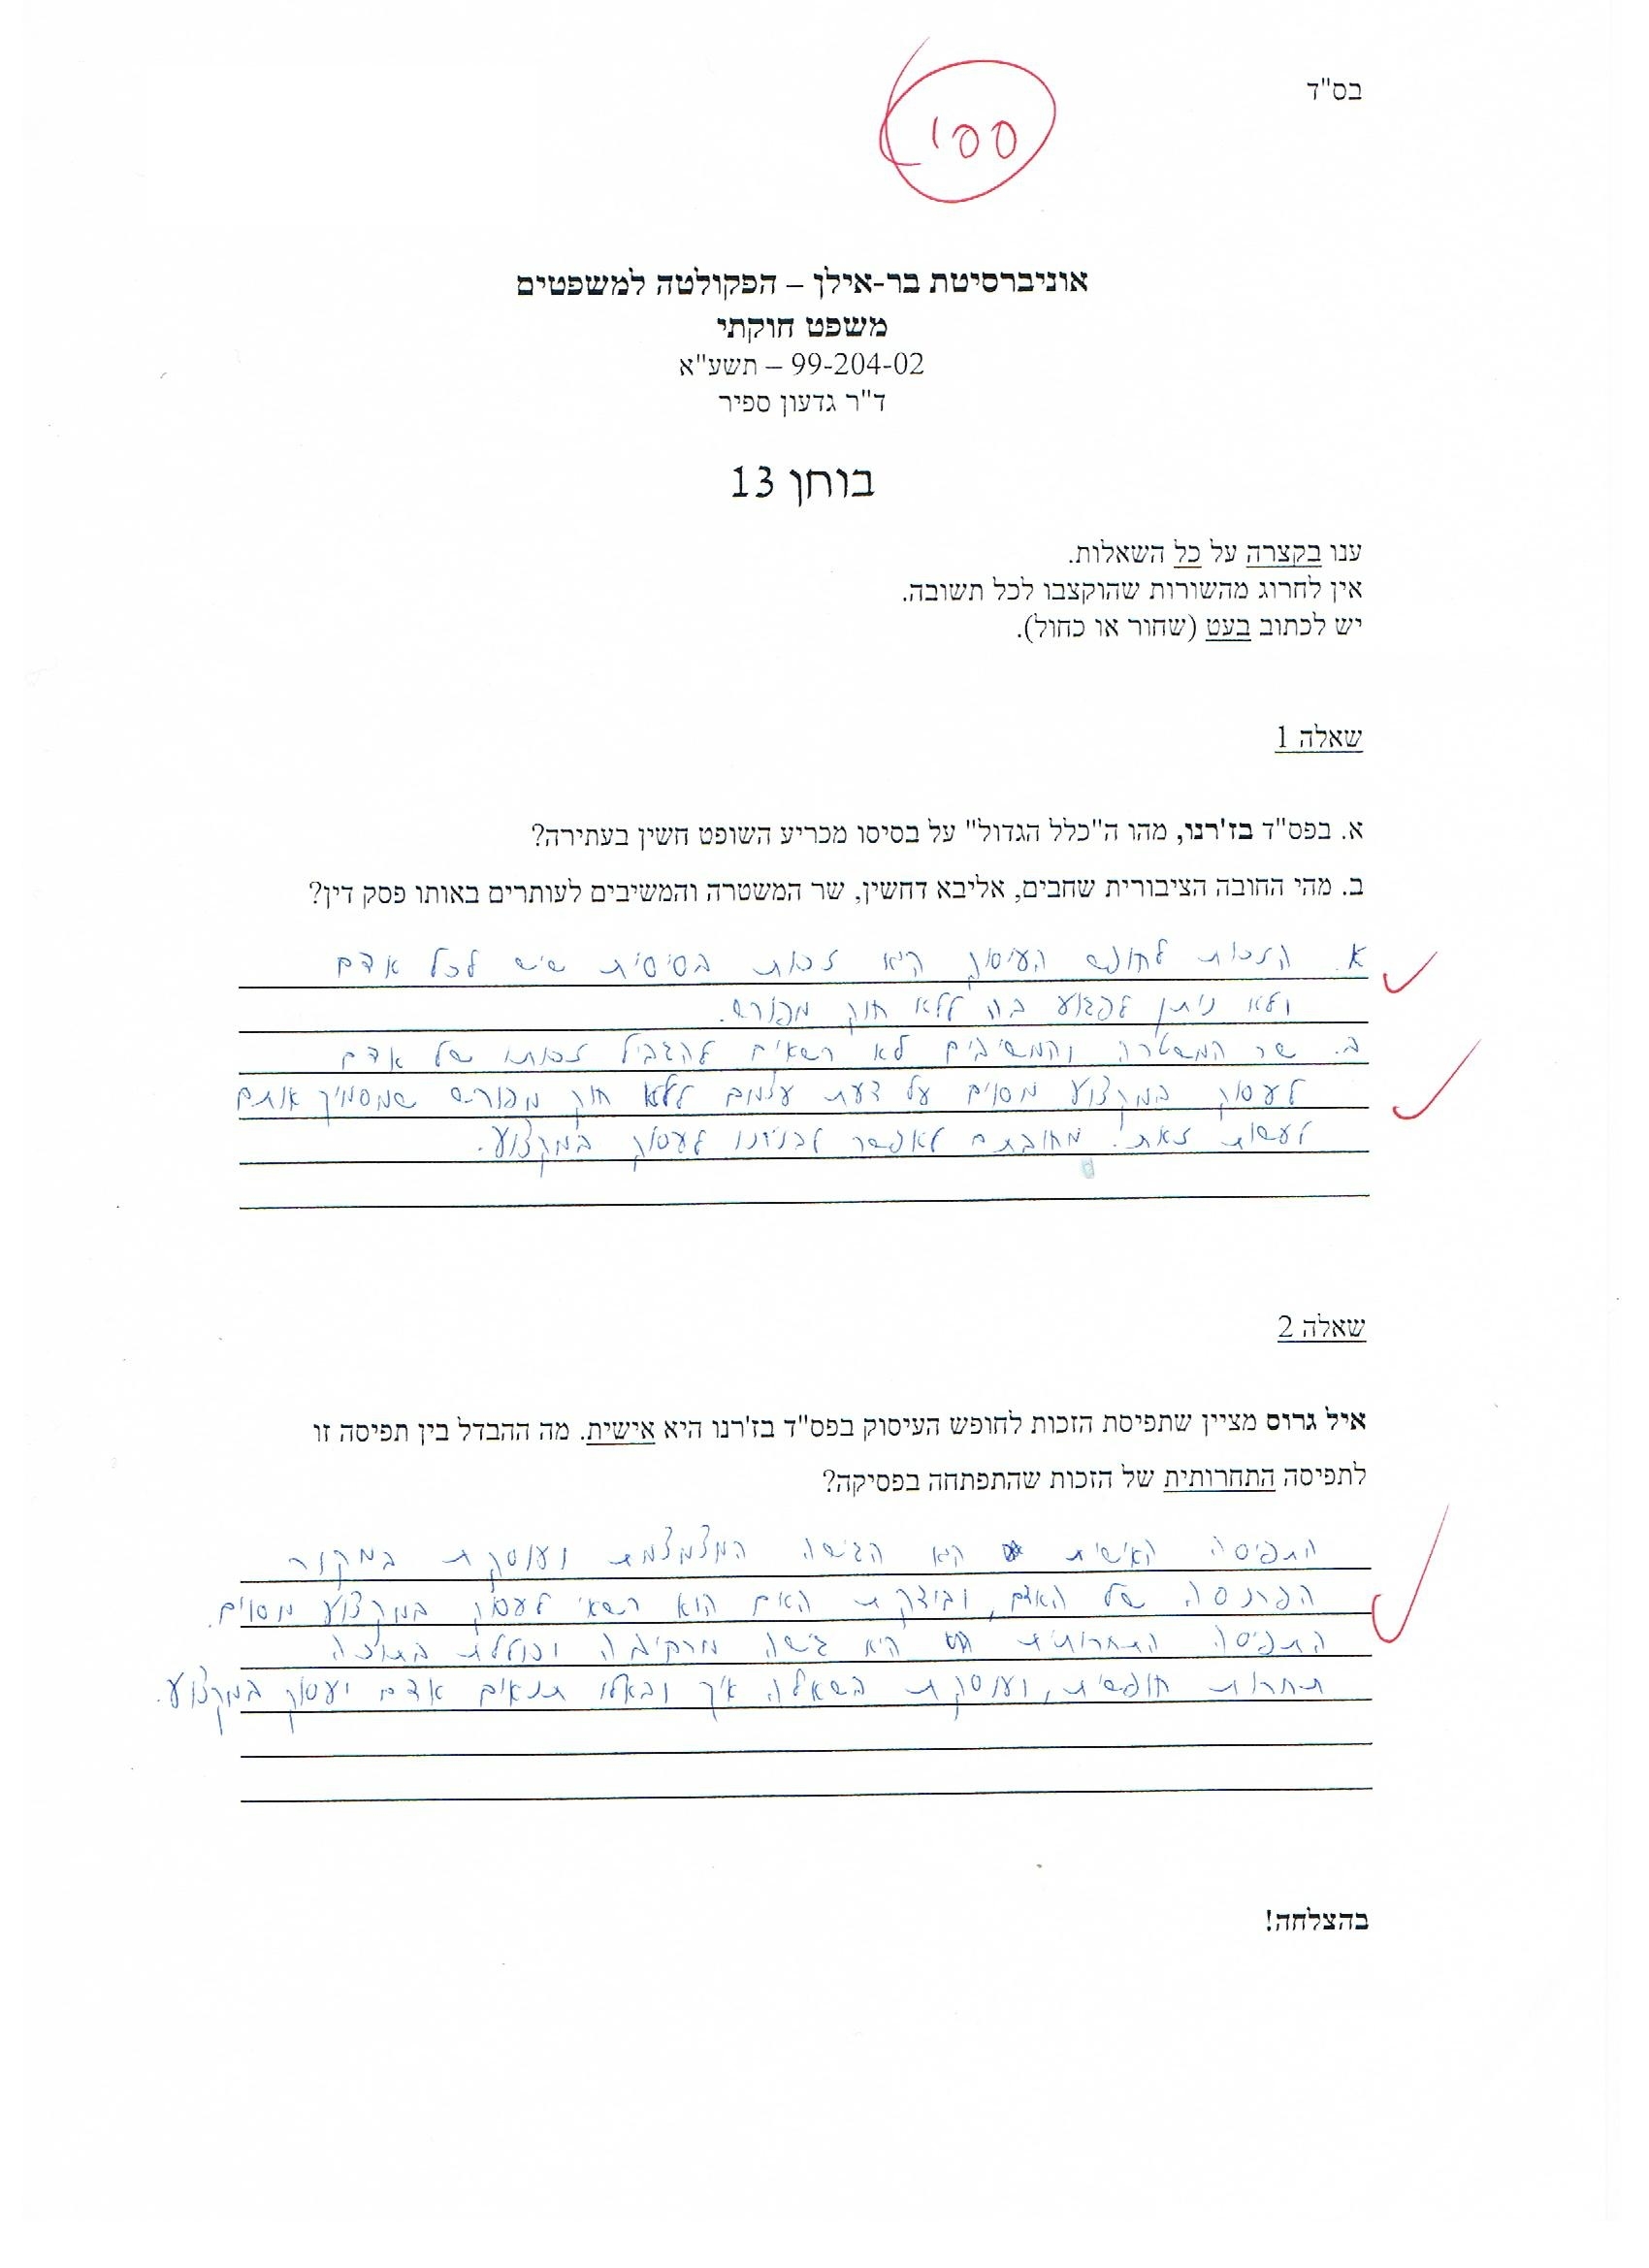 בס"ד
100
אוניברסיטת בר-אילן – הפקולטה למשפטים
משפט חוקתי
99-204-02 – תשע"א
ד"ר גדעון ספיר
בוחן 13
ענו בקצרה על כל השאלות.
אין לחרוג מהשורות שהוקצבו לכל תשובה.
יש לכתוב בעט (שחור או כחול).
שאלה 1
א. בפס"ד בז'רנו, מהו ה"כלל הגדול" על בסיסו מכריע השופט חשין בעתירה?
ב. מהי החובה הציבורית שחבים, אליבא דחשין, שר המשטרה והמשיבים לעותרים באותו פסק דין?
א. הזכות לחופש העיסוק היא זכות בסיסית שיש לכל אדם
ולא ניתן לפגוע בה ללא חוק מפורש.
ב. שר המשטרה והמשיבים לא רשאים להגביל זכותו של אדם
לעסוק במקצוע מסוים על דעת עצמם ללא חוק מפורש שמסמיך אותם
לעשות זאת. מחובתם לאפשר לבז'רנו לעסוק במקצוע.
שאלה 2
איל גרוס מציין שתפיסת הזכות לחופש העיסוק בפס"ד בז'רנו היא אישית. מה ההבדל בין תפיסה זו
לתפיסה התחרותית של הזכות שהתפתחה בפסיקה?
התפיסה האישית היא הגישה המצמצמת ועוסקת במקור
הפרנסה של האדם, ובודקת האם הוא רשאי לעסוק במקצוע מסוים.
התפיסה התחרותית היא גישה מרחיבה וכוללת בתוכה
תחרות חופשית, ועוסקת בשאלה איך ובאלו תנאים אדם יעסוק במקצוע.
בהצלחה!